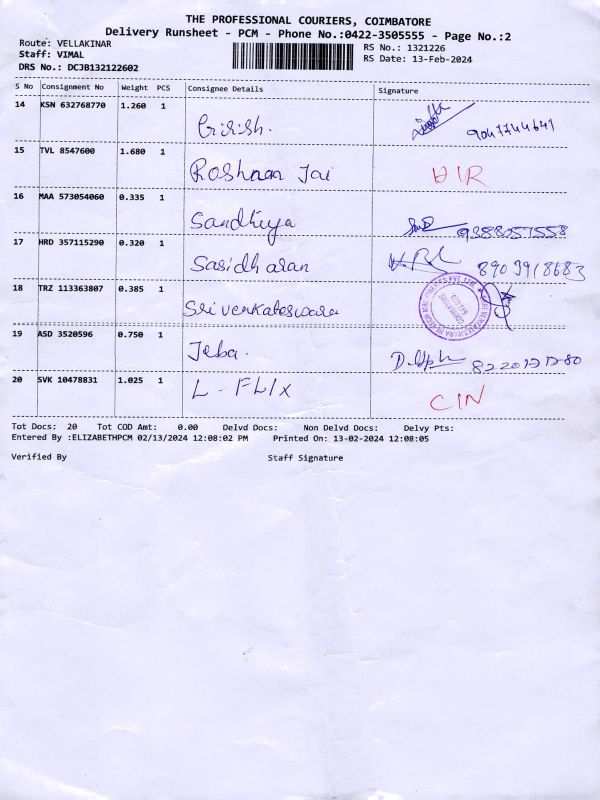 THE PROFESSIONAL COURIERS, COIMBATORE
Delivery Runsheet - PCM - Phone No.:0422-3505555 - Page No.:2
Route: VELLAKINAR RS No.: 1321226
Staff: VIMAL RS Date: 13-Feb-2024
DRS No.: DCJB132122602
S No Consignment No Weight PCS Consignee Details Signature
14 KSN 632768770 1.260 1
Girish. 9047744641
15 TVL 8547600 1.680 1
Roshnaa Jai
16 MAA 573054060 0.335 1
Sandhiya 9388057558
17 HRD 357115290 0.320 1
Sasidharan 8903918683
18 TRZ 113363807 0.385 1
Sri venkateswara
19 ASD 3520596 0.750 1
Jeba.
20 SVK 10478831 1.025 1
L. FLIX CIN
Tot Docs: 20 Tot COD Amt: 0.00 Delvd Docs: Non Delvd Docs: Delvy Pts:
Entered By :ELIZABETHPCM 02/13/2024 12:08:02 PM Printed On: 13-02-2024 12:08:05
Verified By Staff Signature